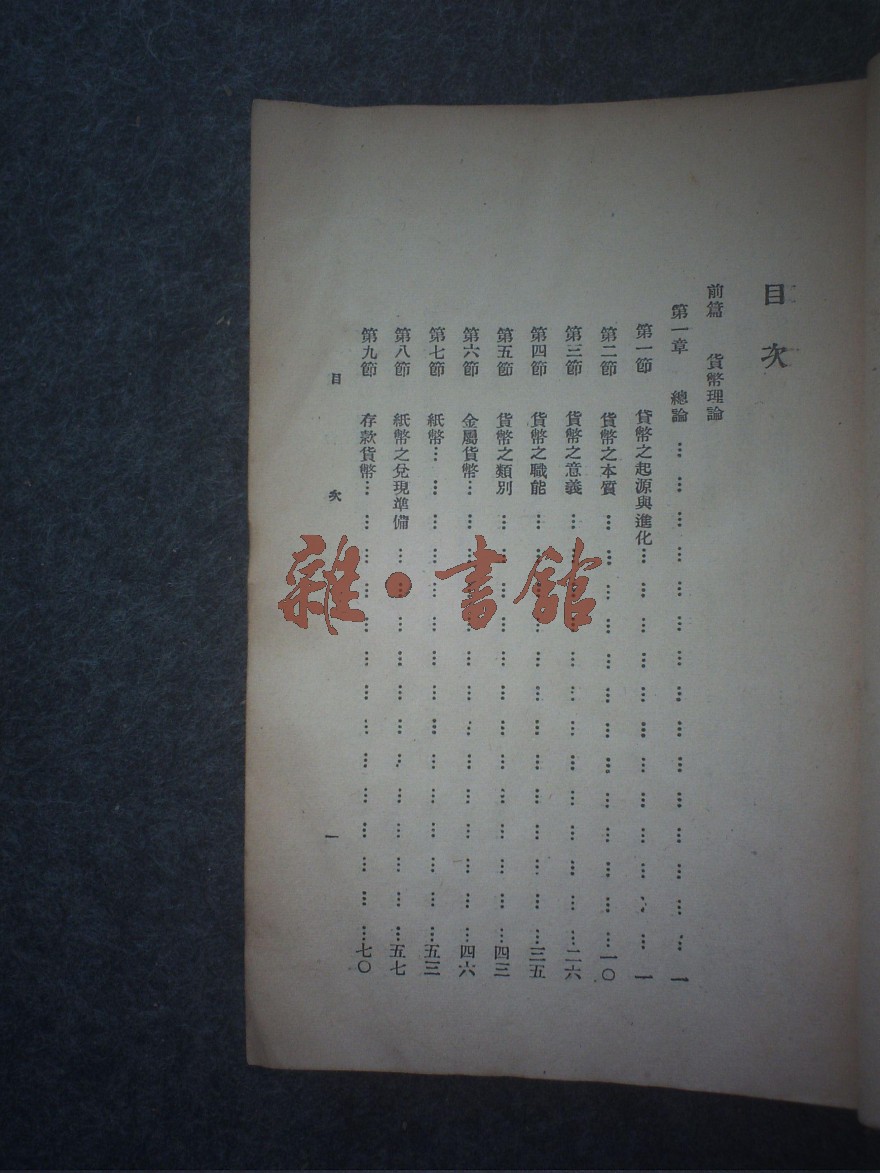 目次
前篇 貨幣理論
第一章 總論 …………………………………………一
第一節 貨幣之起源與進化…………………………………一
第二節 貨幣之本質…………………………………一〇
第三節 貨幣之意義…………………………………二六
第四節 貨幣之職能…………………………………三五
第五節 貨幣之類別…………………………………四三
第六節 金屬貨幣…………………………………四六
第七節 紙幣…………………………………五三
第八節 紙幣之兌現準備…………………………………五七
第九節 存款貨幣…………………………………七〇
目次 一
雜·書館